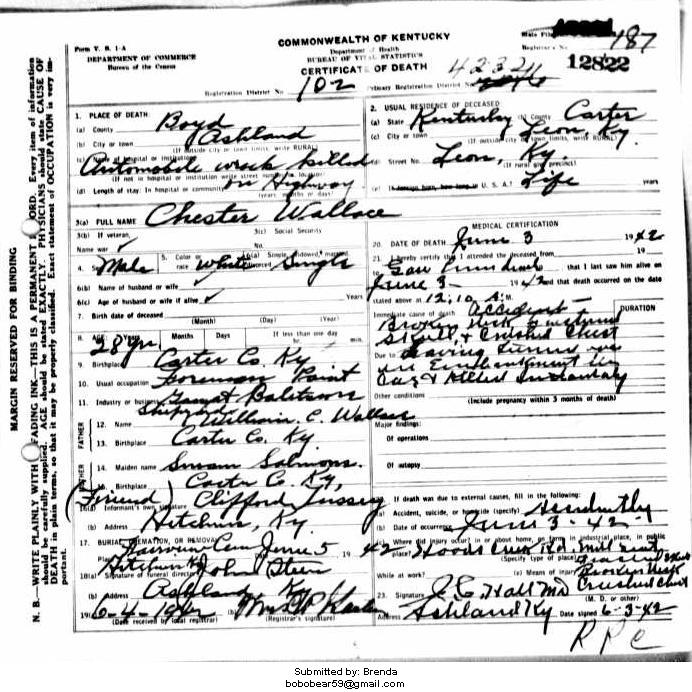 COMMONWEALTH OF KENTUCKY
Form V. S. 1-A
DEPARTMENT OF COMMERCE
Bureau of the Census
Department of Health
BUREAU OF VITAL STATISTICS
CERTIFICATE OF DEATH
State File
Registrar's No. 187
12822
Registration District No. 102
Primary Registration District No.
1. PLACE OF DEATH:
(a) County Boyd
(b) City or town Ashland
(If outside city or town limits, write RURAL)
(c) Name of hospital or institution:
Automobile wreck killed
(If not in hospital or institution write street number or location)
on Highway
(d) Length of stay: In hospital or community
(years, months or days)
2. USUAL RESIDENCE OF DECEASED:
(a) State Kentucky (b) County Carter
(c) City or town Leon, Ky.
(If outside city or town limits, write RURAL)
(d) Street No. Leon, Ky
(If rural give precinct)
(e) If foreign born, how long in U. S. A.? Life years
3(a) FULL NAME Chester Wallace
3(b) If veteran,
Name war
3(c) Social Security
No.
4. Sex Male
5. Color or race White
6(a) Single, widowed, married, divorced Single
6(b) Name of husband or wife
6(c) Age of husband or wife if alive Years
7. Birth date of deceased
(Month) (Day) (Year)
8. AGE: Years Months Days If less than one day
28 yrs hr. min.
9. Birthplace Carter Co. Ky
10. Usual occupation Foreman Paint
11. Industry or business
Shipyard
FATHER
12. Name William C. Wallace
13. Birthplace Carter Co. Ky.
MOTHER
14. Maiden name Susan Salmons.
15. Birthplace Carter Co. Ky.
(Friend) Clifford Tussey
16(a) Informant's own signature
(b) Address Hitchins, Ky.
17. BURIAL, CREMATION, OR REMOVAL
Place Fairview Cem June 5, 1942
Hitchins Ky
18(a) Signature of funeral director John Steen
(b) Address Ashland, Ky
19(a) 6-4-1942
(Date received by local registrar)
(Registrar's signature)
MEDICAL CERTIFICATION
20. DATE OF DEATH June 3 1942
21. I hereby certify that I attended the deceased from 19
to that I last saw him alive on
June 3- 1942 and that death occurred on the date
stated above at 12:10 A. M.
DURATION
Immediate cause of death Accident-
Broken Neck Fractured
Skull & Crushed Chest
Due to
an Embankment in
Car & Killed Instantly
Other conditions
(Include pregnancy within 3 months of death)
Major findings:
Of operations
Of autopsy
22. If death was due to external causes, fill in the following:
(a) Accident, suicide, or homicide (specify) Accidently
(b) Date of occurrence June 3-42
(c) Where did injury occur? in or about home, on farm, in industrial place, in public place? Hoods Creek Rd.
(Specify type of place)
While at work? (e) Means of injury
Broken Neck
Crushed Chest
23. Signature J. C. Hall MD
(M. D. or other)
Address Ashland Ky Date signed 6-3-42
MARGIN RESERVED FOR BINDING
N. B.—WRITE PLAINLY WITH FADING INK—THIS IS A PERMANENT CORD. Every item of information
should be carefully supplied. AGE should be stated EXACTLY. PHYSICIANS should state CAUSE OF
DEATH in plain terms, so that it may be properly classified. Exact statement of OCCUPATION is very im-
portant.
Submitted by: Brenda
bobobear59@gmail.com